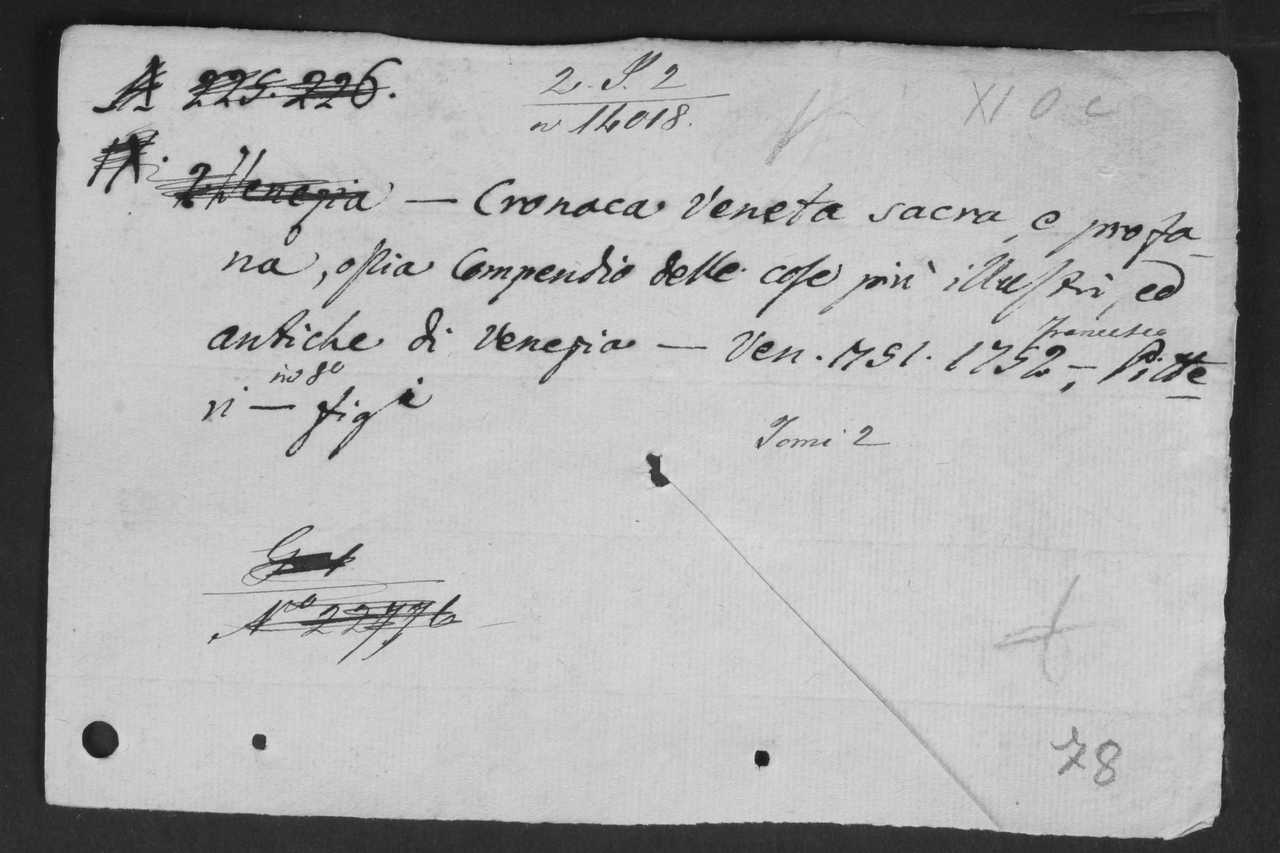 A 225. 226.
2. P. 2
nº 14018.
XI O c
Venezia — Cronaca Veneta sacra, e profa
na, ossia Compendio delle cose più illustri, ed
antiche di Venezia — Ven. 1751. 1752 —, Francesco Pitte
ri — in 8º fig.
Tomi 2
Nro 22776
78